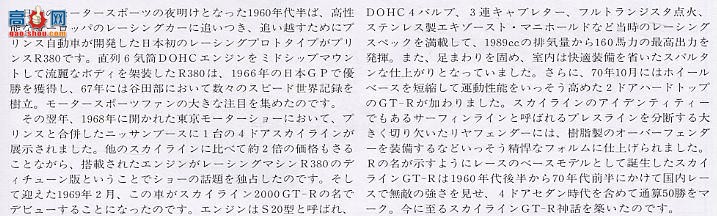 モータースポーツの夜明けとなった1960年代半ば、高性
ロッパのレーシングカーに追いつき、追い越すためにプ
リンス自動車が開発した日本初のレーシングプロトタイプがプリ
ンスR380です。直列6気筒DOHCエンジンをミドシップマウン
トして流麗なボディを架装したR380は、1966年の日本GPで優
勝を獲得し、67年には谷田部において数々のスピード世界記録を
樹立。モータースポーツファンの大きな注目を集めたのです。
その翌年、1968年に開かれた東京モーターショーにおいて、プ
リンスと合併したニッサンブースに1台の4ドアスカイラインが
展示されました。他のスカイラインに比べて約2倍の価格もさる
ことながら、搭載されたエンジンがレーシングマシンR380のデ
ィチューン版ということでショーの話題を独占したのです。そし
て迎えた1969年2月、この車がスカイライン2000GT-Rの名で
デビューすることになったのです。エンジンはS20型と呼ばれ、
DOHC4バルブ、3連キャブレター、フルトランジスタ点火、
ステンレス製エキゾースト・マニホールドなど当時のレーシング
スペックを満載して、1989ccの排気量から160馬力の最高出力を
発揮。また、足まわりを固め、室内は快適装備を省いたスパルタ
ンな仕上がりとなっていました。さらに、70年10月にはホイール
ベースを短縮して運動性能をいっそう高めた2ドアハードトップ
のGT-Rが加わりました。スカイラインのアイデンティティー
でもあるサーフィンラインと呼ばれるプレスラインを分断する大
きく切り欠いたリヤフェンダーには、樹脂製のオーバーフェンダ
ーを装備するなどいっそう精悍なフォルムに仕上げられました。
Rの名が示すようにレースのベースモデルとして誕生したスカイ
ラインGT-Rは1960年代後半から70年代前半にかけて国内レー
スで無敵の強さを見せ、4ドアセダン時代を含めて通算50勝をマ
ーク。今に至るスカイラインGT-R神話を築いたのです。